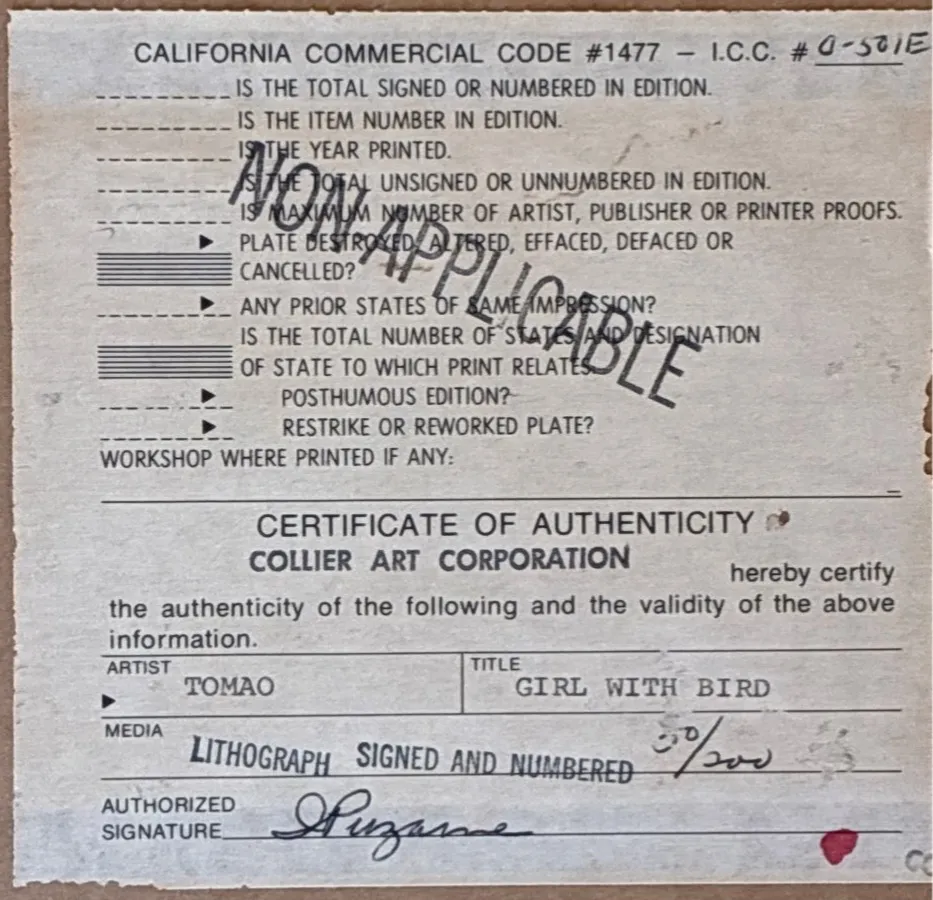 CALIFORNIA COMMERCIAL CODE #1477 – I.C.C. # 0-501E
IS THE TOTAL SIGNED OR NUMBERED IN EDITION.
IS THE ITEM NUMBER IN EDITION.
IS THE YEAR PRINTED.
IS THE TOTAL UNSIGNED OR UNNUMBERED IN EDITION.
IS MAXIMUM NUMBER OF ARTIST, PUBLISHER OR PRINTER PROOFS.
PLATE DESTROYED, ALTERED, EFFACED, DEFACED OR
CANCELLED?
ANY PRIOR STATES OF SAME IMPRESSION?
IS THE TOTAL NUMBER OF STATES AND DESIGNATION
OF STATE TO WHICH PRINT RELATES.
POSTHUMOUS EDITION?
RESTRIKE OR REWORKED PLATE?
NON-APPLICABLE
WORKSHOP WHERE PRINTED IF ANY:
CERTIFICATE OF AUTHENTICITY
COLLIER ART CORPORATION
hereby certify
the authenticity of the following and the validity of the above
information.
ARTIST TITLE
TOMAO GIRL WITH BIRD
MEDIA
LITHOGRAPH SIGNED AND NUMBERED 50/200
AUTHORIZED
SIGNATURE